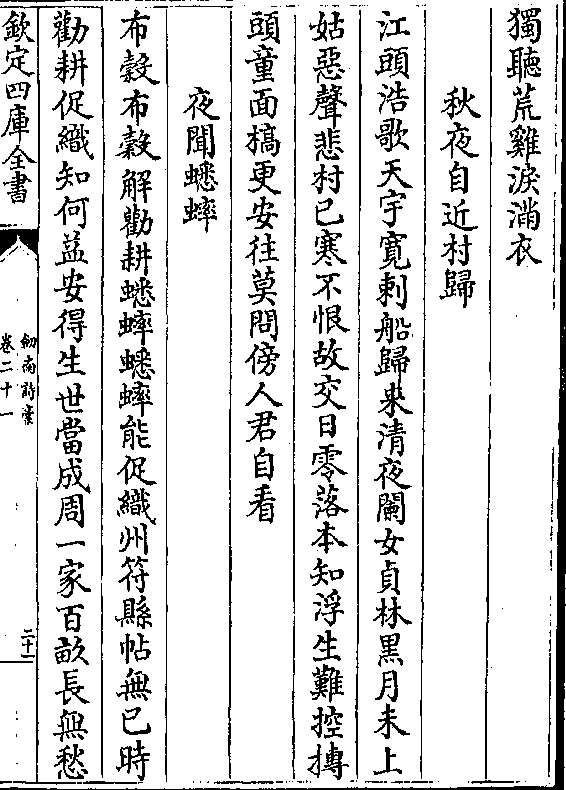 獨聽荒雞淚滿衣
秋夜自近村歸
江頭浩歌天宇寛刺船歸來清夜闌女貞林黒月未上
姑惡聲悲村已寒不恨故交日零落本知浮生難控摶
頭童面槁更安往莫問傍人君自看
夜聞蟋蟀
布穀布穀解勸耕蟋蟀蟋蟀能促織州符縣帖無已時
勸耕促織知何益安得生世當成周一家百畝長無愁
欽定四庫全書
劒南詩稾
卷二十一
二十一